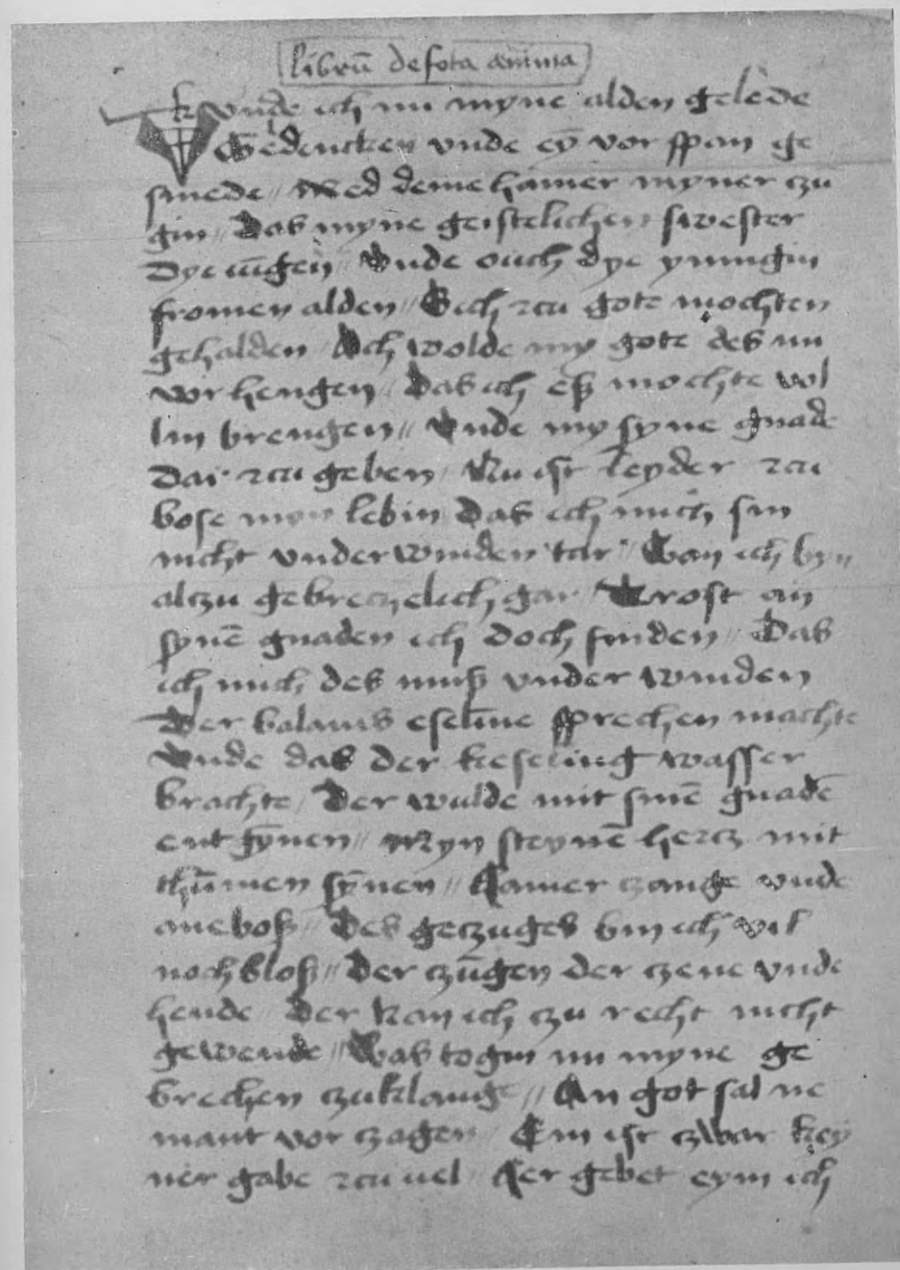 librū de sota anima
kunde ich nu myne alden gelede
Gedencken vnde eȳ vor span ge
smede // Med deme hamer myner czu
gin // Das myne geistelichen swester
Dye iūgen // Vnde ouch dye ynnigin
fromen alden // Sich zcu gote mochten
gehalden // Ach wolde my gote des nu
vorhengen // Das ich eß mochte vol
lin brengen // Vnde my syne gnade
Dar zcu geben // Nu ist leyder zcu
bose myn lebin Das ich mich sin
nicht vnderwinden tar // Wan ich byn
alczu gebreczelich gar // Trost an
synē gnaden ich doch finden // Das
ich mich des muß vnder winden
Der balams eselīne sprechen machte
Vnde das der keseling wasser
brachte // Der wulde mit sinē gnadē
entgȳnen // Myn steynē hercz mit
thūmen sȳnen // Hamer czange vnde
aneboß // Des geczuges bin ich vil
noch bloß // Der czūgen der czene vnde
hende // Der kan ich czu recht nicht
gewende // Was togin nu myne ge
brechen czuklange // An got sal ne
mant vor czagen // Em ist czwar key
ner gabe zcu uel // Her gebet eym ich